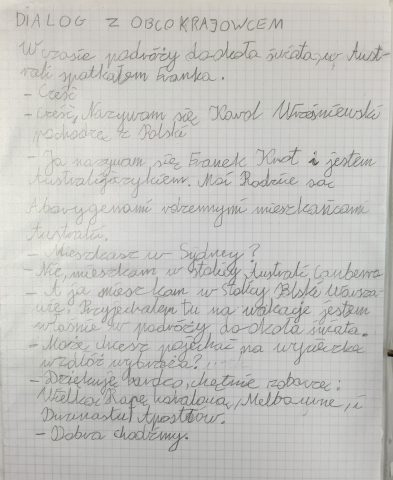 DIALOG Z OBCOKRAJOWCEM
W czasie podróży dookoła świata, w Aust-
rali spotkałem Franka.
- Cześć
- Cześć, Nazywam się Karol Wrześniewski
pochodzę z Polski
- Ja nazywam się Franek Knot i jestem
Australijczykiem. Moi Rodzice są
Aborygenami rdzennymi mieszkańcami
Australi.
- Mieszkasz w Sydney?
- Nie, mieszkam w stolicy Australi Canberra
- A ja mieszkam w stolicy Polski Warsza-
wie. Przyjechałem tu na wakacje jestem
właśnie w podróży dookoła świata.
- Może chcesz pojechać na wycieczkę
wzdłóż wybrzeża?
- Dziękuję bardzo, chętnie zobaczę:
Wielką Rafę koralową, Melbourne, i
Dwunastu Apostłów.
- Dobra chodźmy.